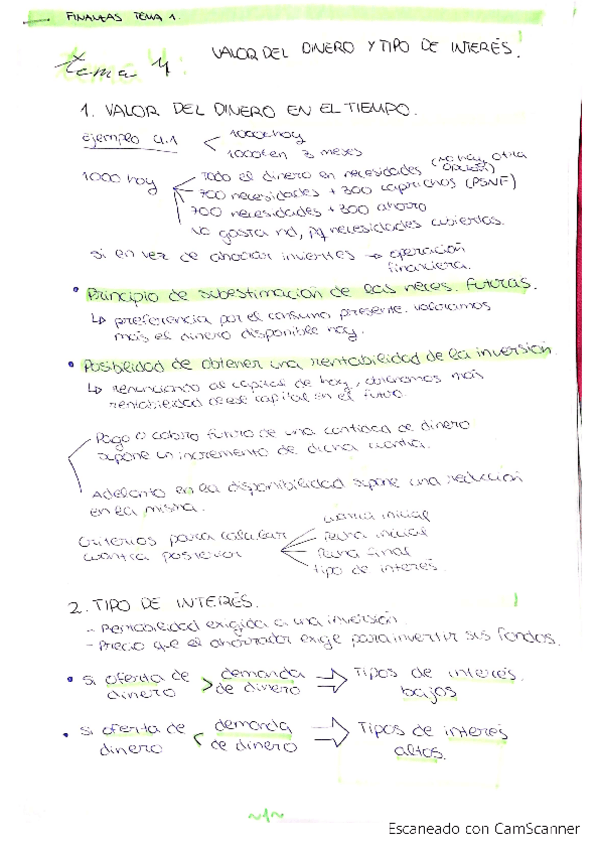 FINANZAS TEMA 1.
tema 4: VALOR DEL DINERO Y TIPO DE INTERÉS.
1. VALOR DEL DINERO EN EL TIEMPO.
ejemplo 4.1
1000€ hoy
1000€ en 3 meses
1000 hoy
Todo el dinero en necesidades (no hay otra opción)
700 necesidades + 300 caprichos (PSNF)
700 necesidades + 300 ahorro
No gasta nd, pq necesidades cubiertas.
si en vez de ahorrar inviertes → operación
financiera.
• Principio de subestimación de las neces. futuras.
↳ preferencia por el consumo presente. valoramos
más el dinero disponible hoy.
• Posibilidad de obtener una rentabilidad de la inversión
↳ renunciando al capital de hoy, obtenemos más
rentabilidad de ese capital en el futuro.
Pago o cobro futuro de una cantidad de dinero
supone un incremento de dicha cuantía.
Adelanto en la disponibilidad supone una reducción
en la misma.
Criterios para calcular
cuantía posterior
cuantía inicial
fecha inicial
fecha final
tipo de interés.
2. TIPO DE INTERÉS.
- Rentabilidad exigida a una inversión.
- Precio que el ahorrador exige para invertir sus fondos.
• si oferta de dinero > demanda de dinero ⇒ Tipos de interés bajos
• si oferta de dinero < demanda de dinero ⇒ Tipos de interés altos.
~1~
Escaneado con CamScanner